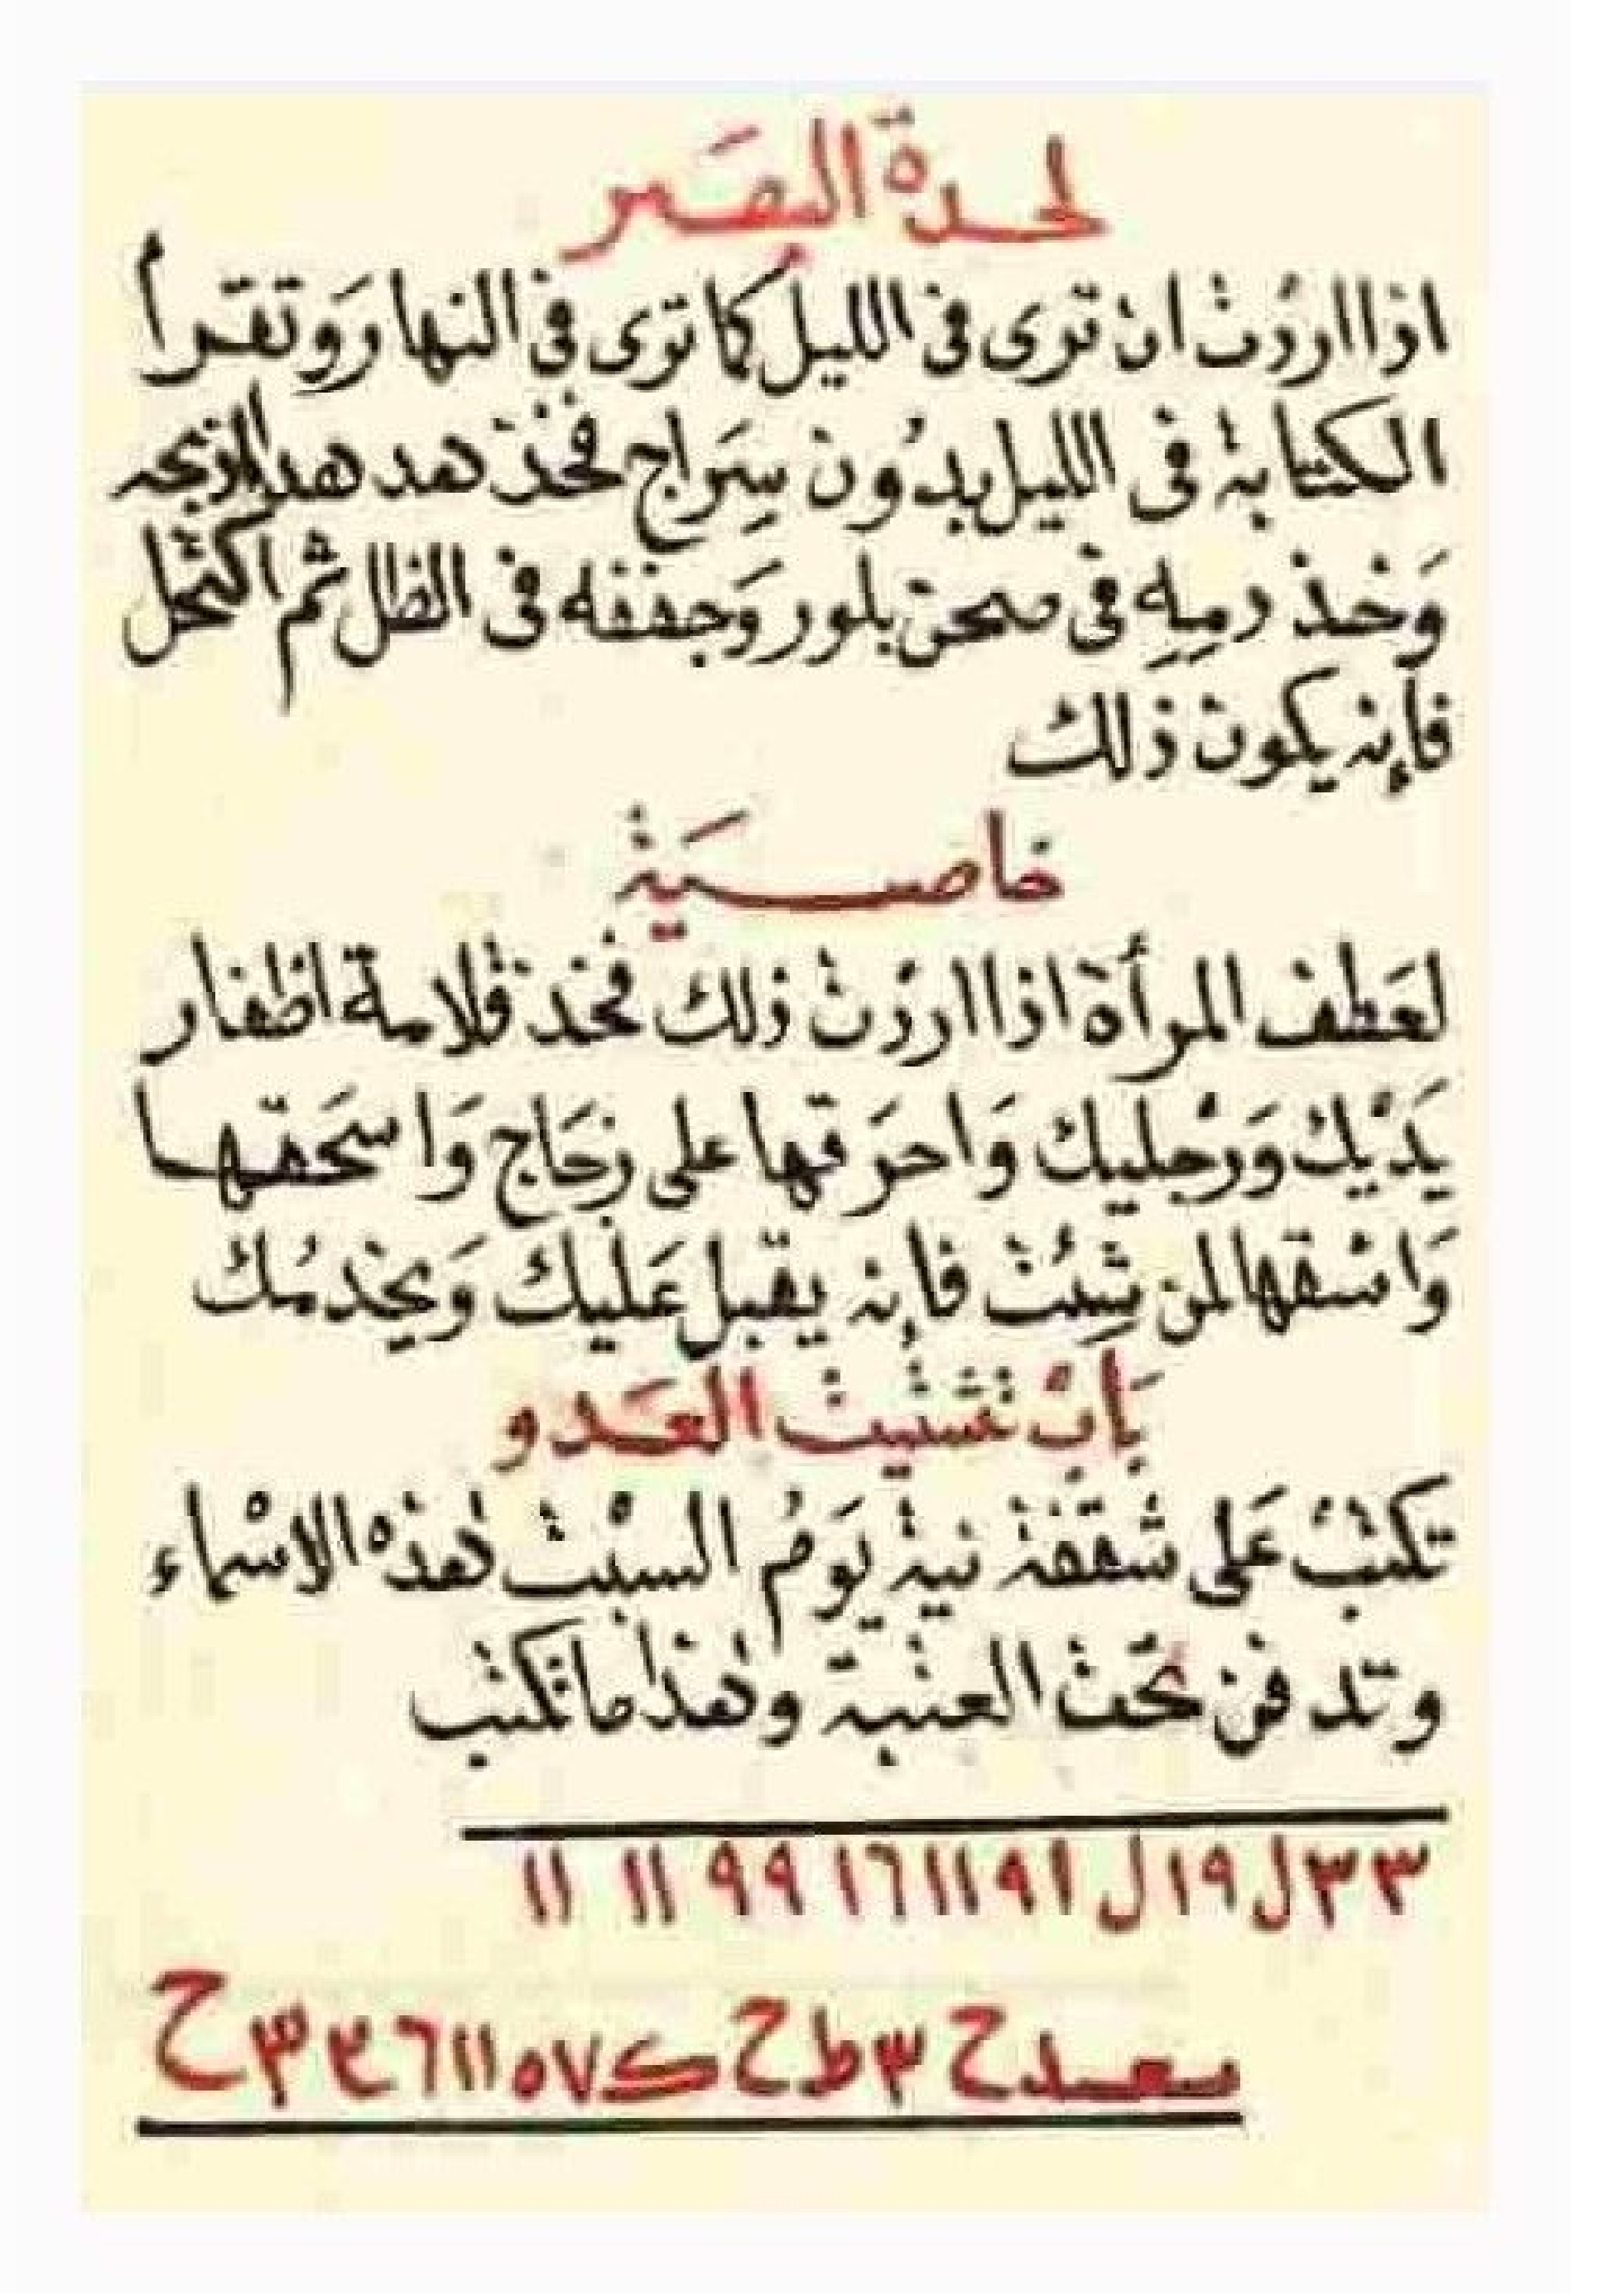 لحدة البصر
اذا اردت ان ترى فى الليل كما ترى فى النهار وَتقرأ
الكتابة فى الليل بدُون سِرَاج فخذ هد هدا واذبحه
وَخذ دمِهِ فى صحن بلور وَجففه فى الظل ثم اكتحل
فإنه يكون ذلك
خاصيَة
لعَطف المرأة اذا اردْت ذلك فخذ قلامة اظفار
يَدَيْك وَرجليك وَاحرَقها على زجَاج وَاسحَقها
وَاسْقها لمن شِئت فإنه يقبل عَليك وَيخدمُك
بَابْ تشتيت العَدو
تكتبْ عَلى شقفة نية يَومُ السبْت هٰذه الاسْماء
وتدفن تحت العتبة وهٰذا ما تكتب
٣٣ل١٩ل١٩١١١٦١٩٩ ١١ ١١
معدح٣طح ك٧٥١١٦٤٣ح